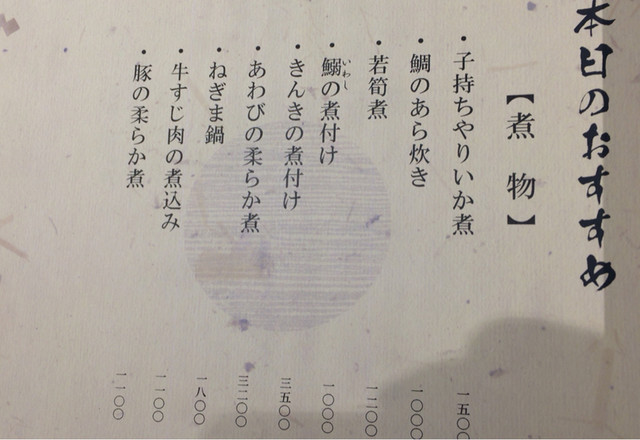 本日のおすすめ
【煮物】
・子持ちやりいか煮 一五〇〇
・鯛のあら炊き 一〇〇〇
・若筍煮 一二〇〇
・鰯の煮付け 一〇〇〇
いわし
・きんきの煮付け 三五〇〇
・あわびの柔らか煮 三二〇〇
・ねぎま鍋 一八〇〇
・牛すじ肉の煮込み 一一〇〇
・豚の柔らか煮 一一〇〇